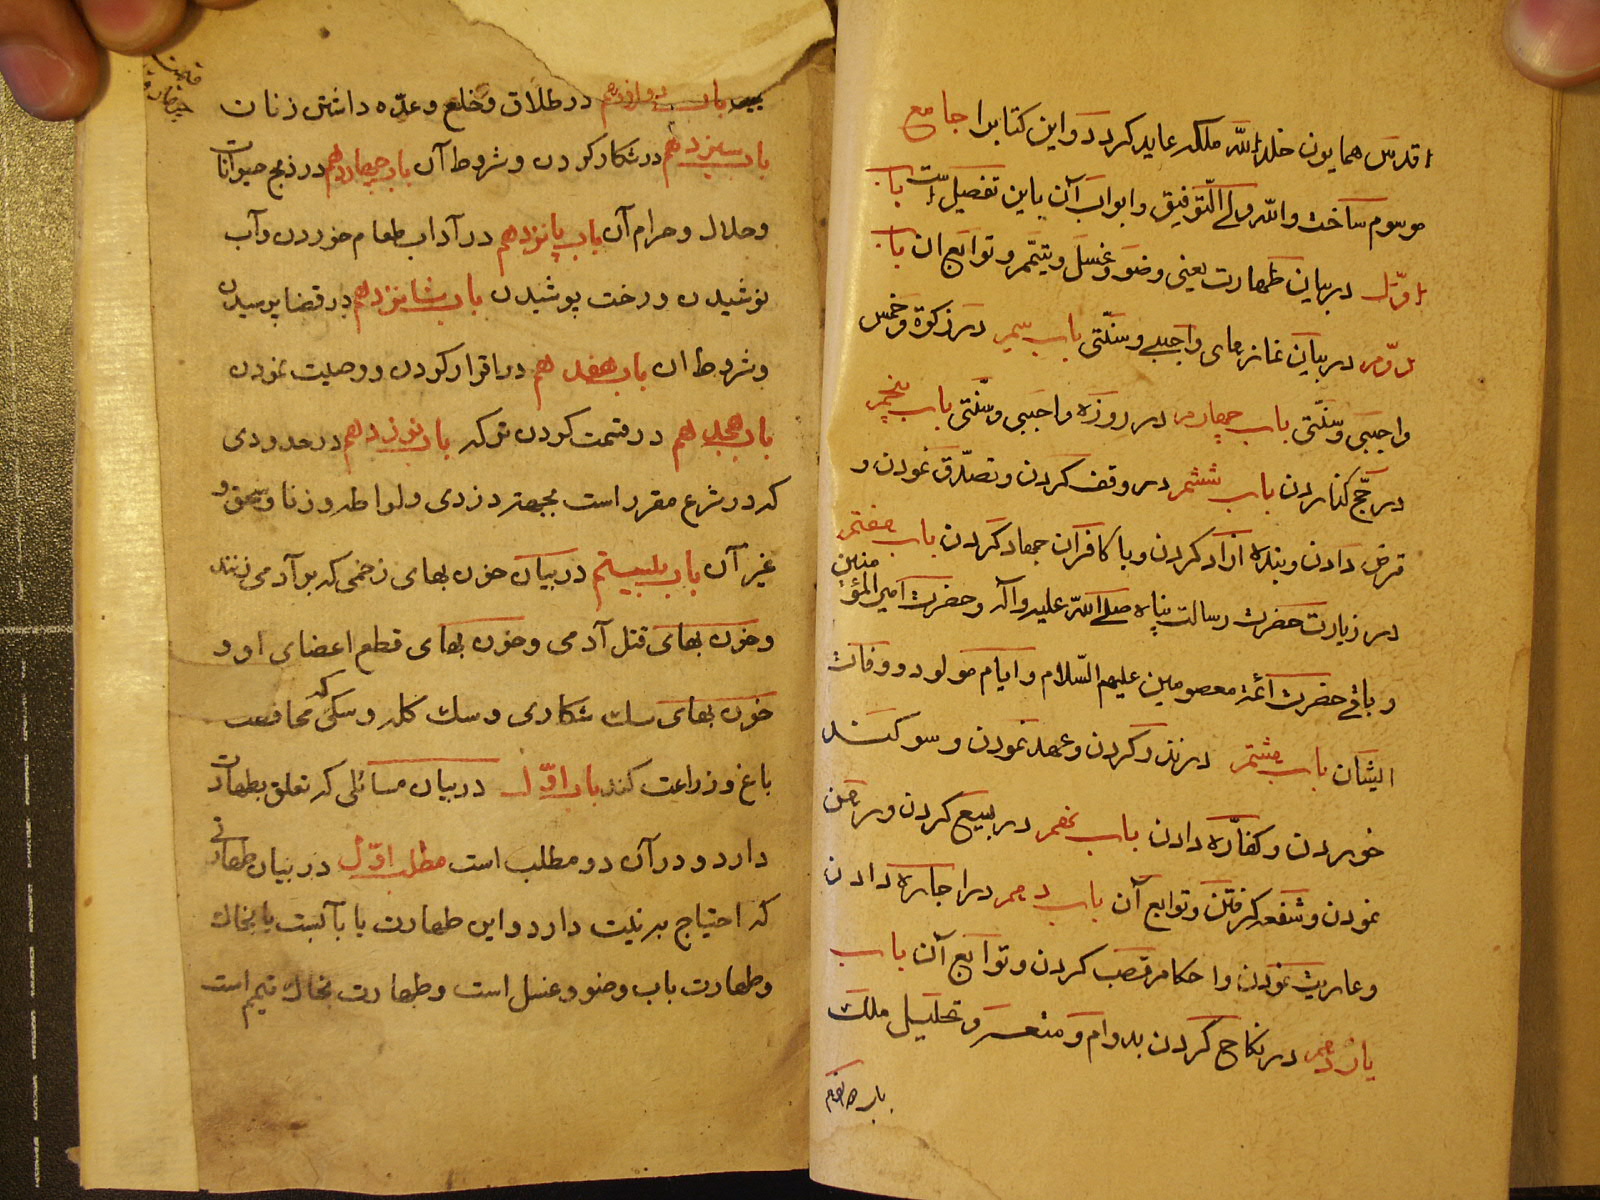 اقدس همایون خلد الله ملکه عاید کردد و این کتابرا جامع
موسوم ساخت والله ولی التوفیق وابواب آن باین تفصیل است باب
اوّل در بیان طهارت یعنی وضو وغسل وتیمّم وتوابع ان باب
دوّم در بیان نمازهای واجبی وسنّتی باب سیم در زکوة وخمس
واجبی وسنّتی باب چهارم در روزه واجبی وسنّتی باب پنجم
در حجّ کذاردن باب ششم در وقف کردن وتصدّق نمودن و
قرض دادن وبنده ازاد کردن وبا کافران جهاد کردن باب هفتم
در زیارت حضرت رسالت پناه صلی الله علیه وآله وحضرت امیر المؤمنین
وباقی حضرت ائمّه معصومین علیهم السّلام وایام مولود ووفات
ایشان باب هشتم در نذر کردن وعهد نمودن وسوکند
خوردن وکفّاره دادن باب نهم در بیع کردن ورهن
نمودن وشفعه کرفتن وتوابع آن باب دهم در اجاره دادن
وعاریت نمودن واحکام غصب کردن وتوابع آن باب
یازدهم در نکاح کردن بدوام ومتعه وتحلیل ملک
باب دوازدهم در طلاق وخلع وعدّه داشتن زنان
باب سیزدهم در شکار کردن وشروط آن باب چهاردهم در ذبح حیوانات
وحلال وحرام آن باب پانزدهم در آداب طعام خوردن وآب
نوشیدن ورخت پوشیدن باب شانزدهم در قضا پرسیدن
وشروط ان باب هفدهم در اقرار کردن ووصیت نمودن
باب هجدهم در قسمت کردن ترکه باب نوزدهم در حدودی
که در شرع مقرر است بجهته دزدی ولواطه وزنا وسحق و
غیر آن باب بیستم در بیان خون بهای زخمی که بر آدمی زنند
وخون بهای قتل آدمی وخون بهای قطع اعضای او و
خون بهای سک شکاری وسک کله وسکی که محافظت
باغ وزراعت کند باب اوّل در بیان مسائلی که تعلق بطهارت
دارد ودر آن دو مطلب است مطلب اوّل در بیان طهارتی
که احتیاج به نیّت دارد واین طهارت یا بآبست یا بخاک
وطهارت باب وضو وغسل است وطهارت بخاک تیمم است